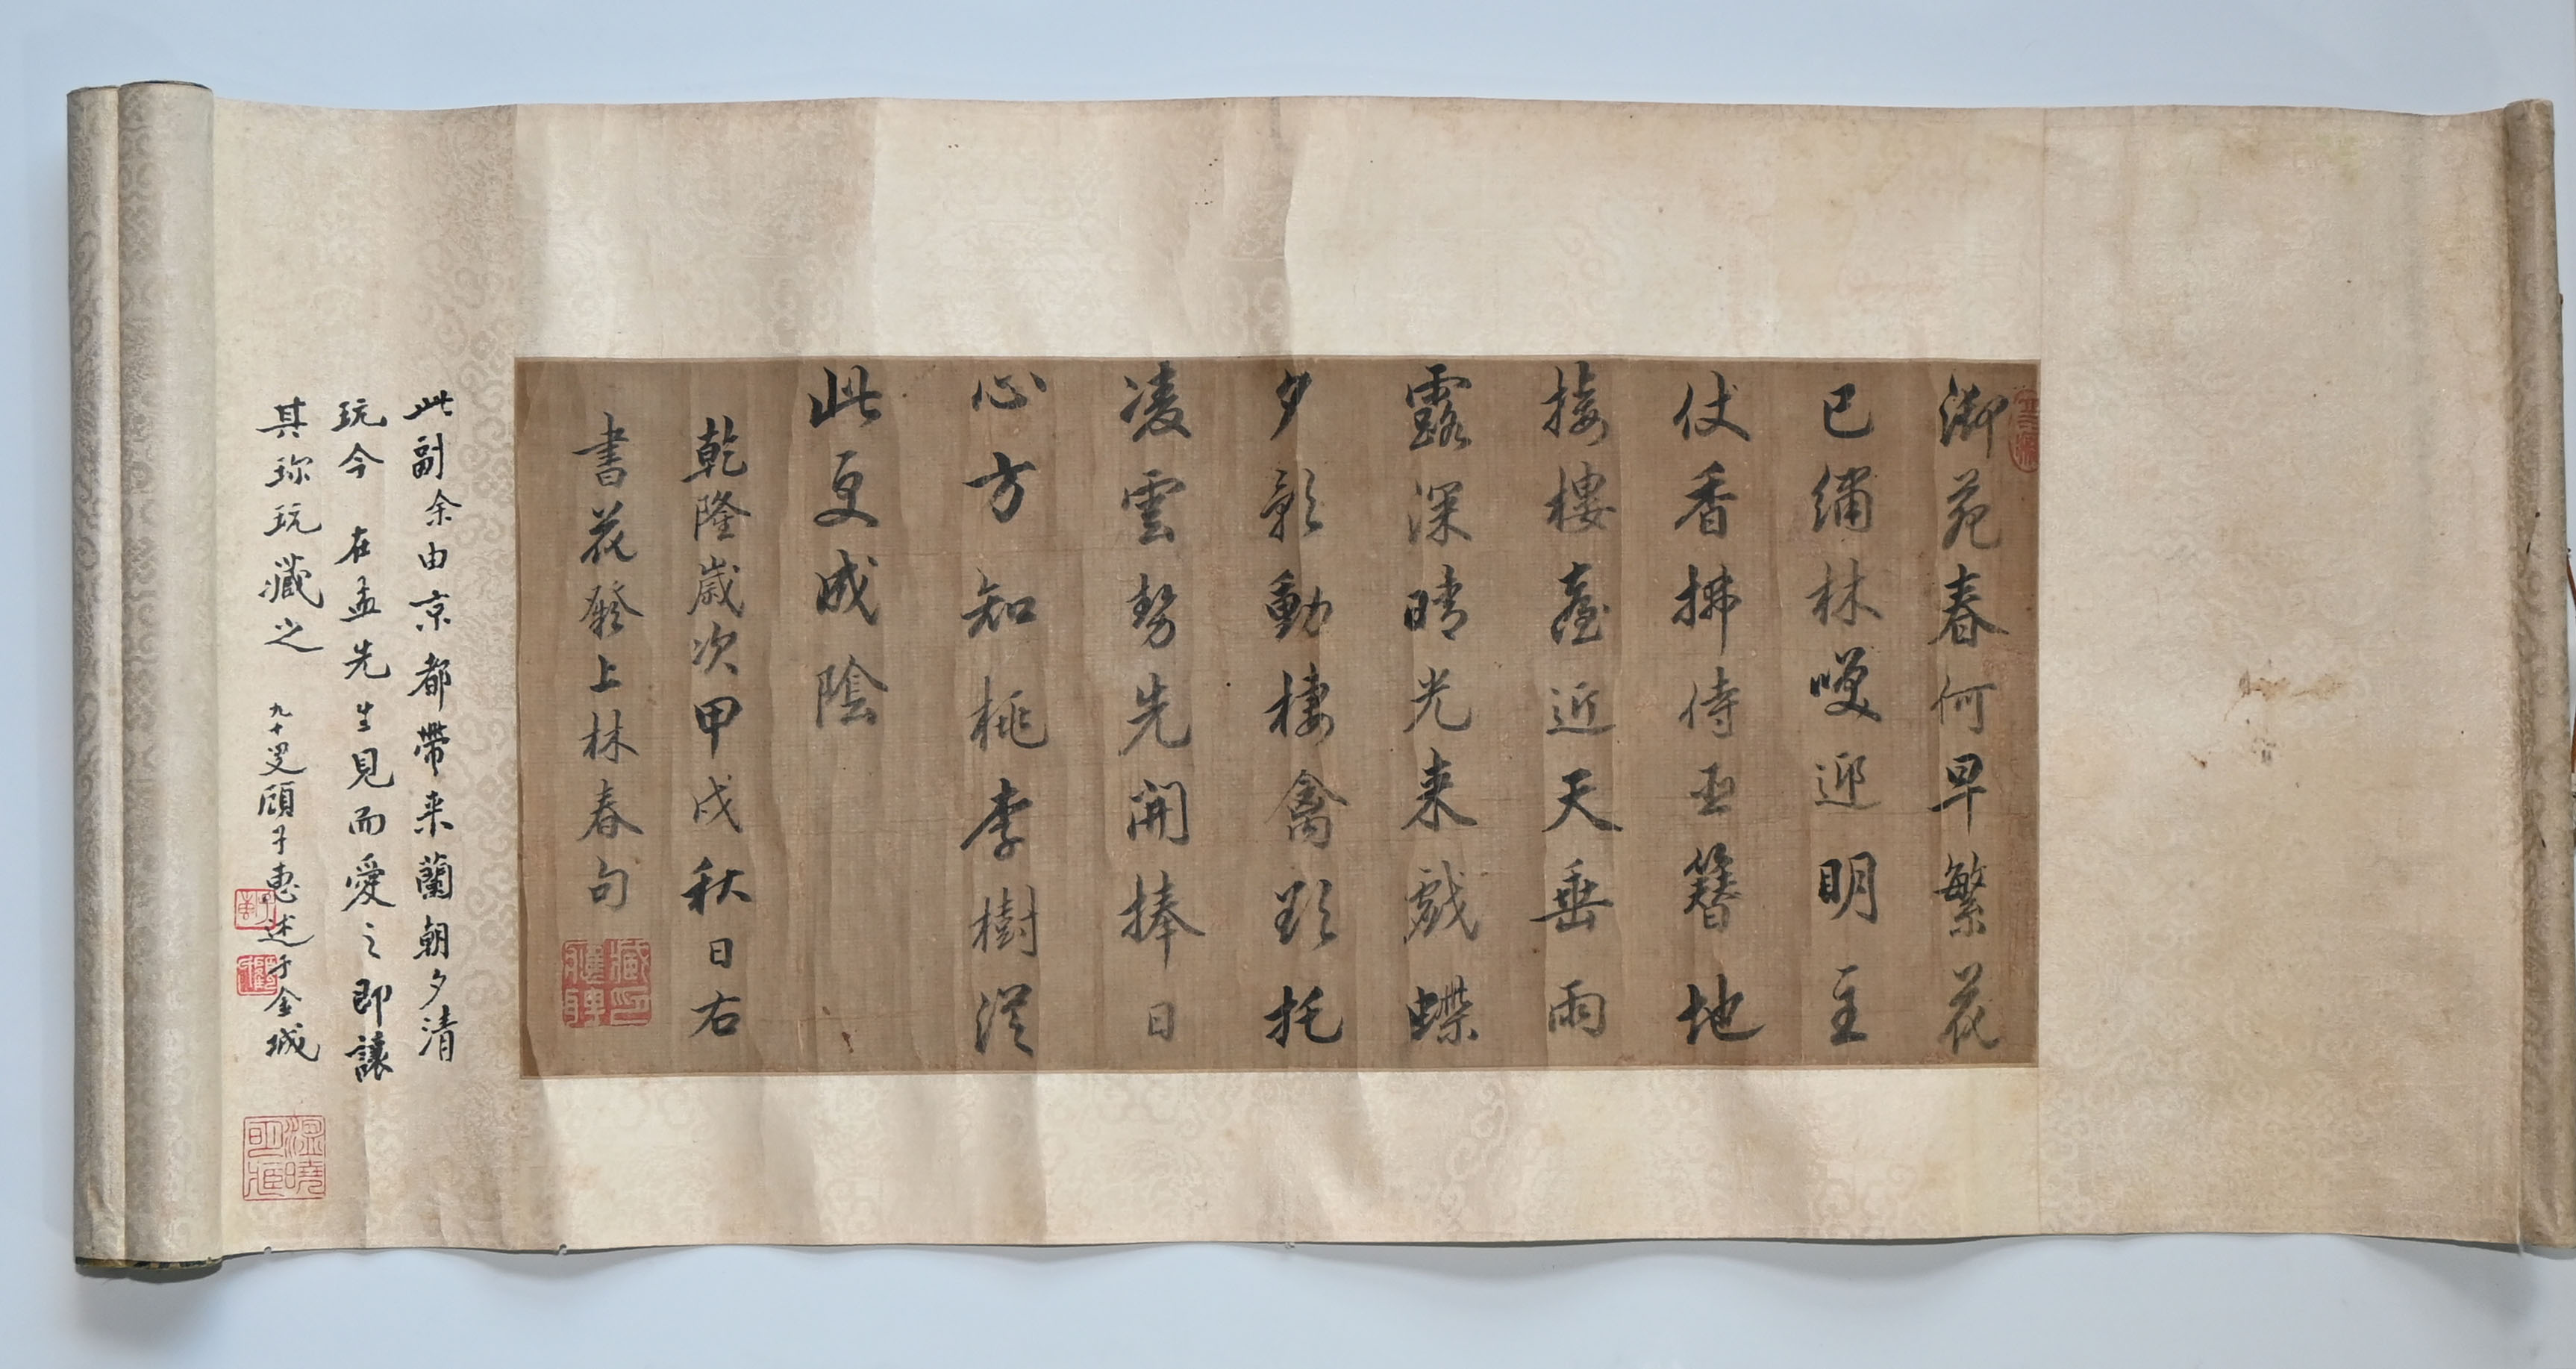 御苑春何早繁花
已繡林咲迎明主
仗香拂侍臣簪地
接樓臺近天垂雨
露深晴光来戲蝶
夕影動棲禽欲托
凌雲勢先開捧日
心方知桃李樹從
此更成陰
乾隆歲次甲戌秋日右
書花發上林春句
此副余由京都帶来蘭朝夕清
玩今 在孟先生見而愛之即讓
其珍玩藏之 九十叟顧子惠述于金城